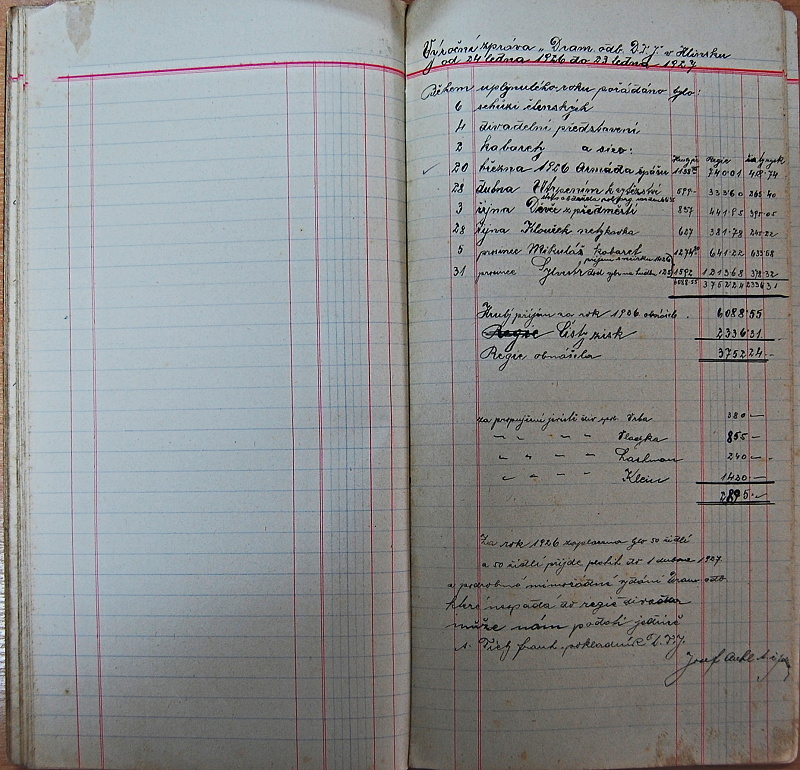 Výroční zpráva „Dram. odb. D.T.J. v Hlinsku
od 24 ledna 1926 do 23 ledna 1927
Během uplynulého roku pořádáno bylo:
6 schůzí členských
4 divadelní představení
2 kabarety a sice:
Hrubý př. Regie Čistý zisk
20 března 1926 Armáda spásy 1188 74001
28 dubna Utrpením k vítězství 599 33360 265 40
3 října Děvče z předměstí 837 441.95 395.05
28 října Klouček netykavka 627 381.78 245.22
5 prosince Mikuláš. kabaret 1274 641.22 633.58
31 prosince Sylvestr 1592 1213.68 378.32
6088.55 3752.24 2336.31
Hrubý příjem za rok 1926 obnáší 6088.55
Regie Čistý zisk 2336.31
Regie obnášela 3752.24.-
za propujčení jeviště div. spol. Vrba 380.—
" " " " Vlaszka 855.—
" " " " Lachman 240.—
" " " " Klein 1420.—
2895.—
Za rok 1926 zaplaceno bylo 50 židlí
a 50 židlí přijde platit do 1 dubna 1927.
a podrobné mimořádné vydání Dram. odb.
které nespadá do regie divadla
může nám podati jedině
s. Tichý frant. pokladník D.T.J.
Josef